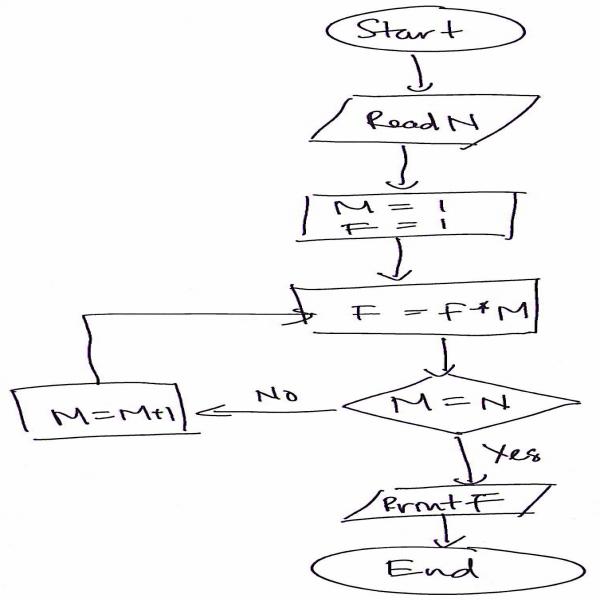 Start
Read N
M = 1
F = 1
F = F * M
M = N
No
M = M+1
Yes
Print F
End